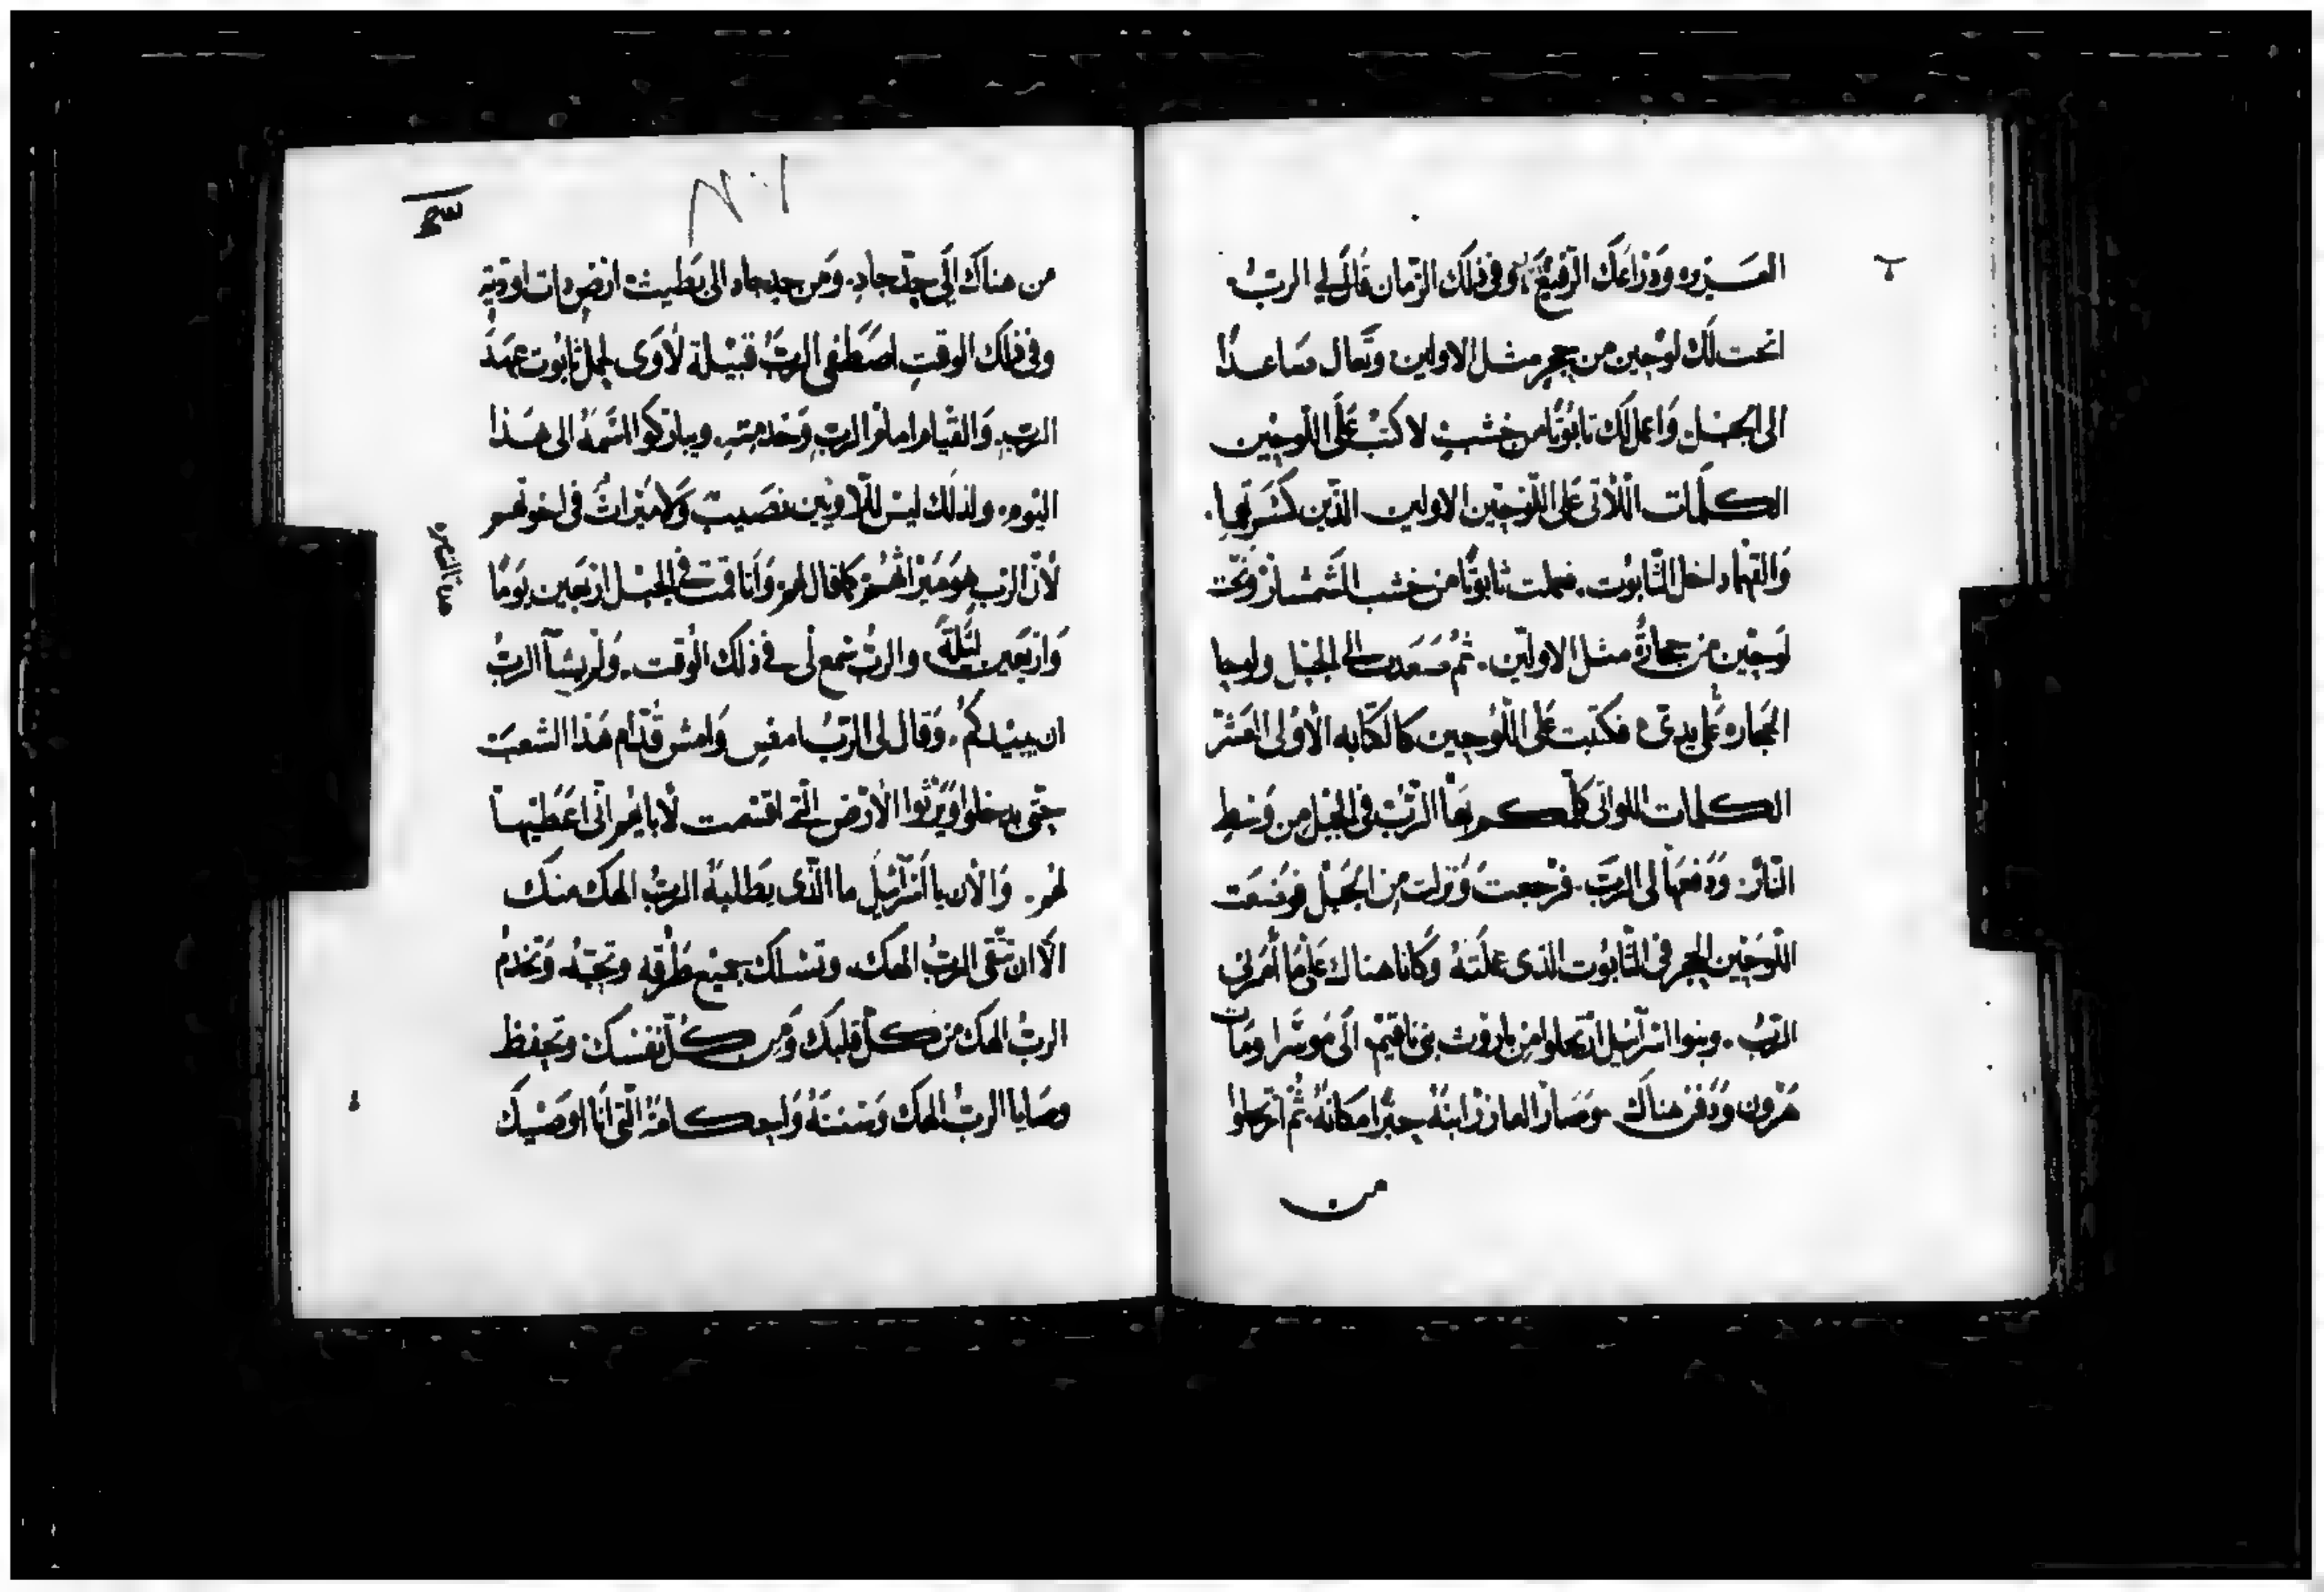 العزيزه وذراعك الرفيع وفي ذلك الزمان قال لي الرب
انحت لك لوحين من حجر مثل الاولين وتعال صاعدًا
الى الجبل واعمل لك تابوتًا من خشب لاكتب على اللوحين
الكلمات اللاتي على اللوحين الاولين الذين كسرتهما.
والقهما داخل التابوت. فعملت تابوتًا من خشب الشمشار ونحت
لوحين من حجارة مثل الاولين. ثم صعدت الى الجبل ولوحا
الحجاره على يدي فكتبت على اللوحين كالكتابه الاولى العشر
الكلمات اللواتي كلمكم بها الرب في الجبل من وسط
النار. ودفعها لي الرب. فرجعت ونزلت من الجبل فوضعت
اللوحين الحجر في التابوت الذي عملته وكانا هناك على ما أمرني
الرب. وبنوا اسرآئيل ارتحلوا من باروث بني ياقيم الى موسرا ومات
هرون ودفن هناك وصار العازر ابنه حبرا مكانه ثم ارتحلوا
من
من هناك الى جد جاد. ومن جد جاد الى يطبيث ارض ذات اودية
وفي ذلك الوقت اصطفى الرب قبيلة لاوى لحمل تابوت عهد
الرب. والقيام امام الرب وخدمته. ويباركوا اسمه الى هذا
اليوم. ولذلك ليس للاويين نصيب ولا ميراث في اخوتهم
لأن الرب هو ميراثهم كما قال لهم وأنا قمت في الجبل اربعين يومًا
واربعين ليلة والرب سمع لي في ذلك الوقت. ولم يشآ الرب
ان يبيدكم. وقال لي الرب امض وامش قدام هذا الشعب
حتى يدخلوا ويرثوا الأرض التي اقسمت لابايهم اني اعطيها
لهم. والأن يا اسرآئيل ما الذي يطلبه الرب الهك منك
الا ان تتقى الرب الهك. وتسلك بجميع طرقه وتحبه وتخدم
الرب الهك من كل قلبك ومن كل نفسك وتحفظ
وصايا الرب الهك وسننه واحكامه التي انا اوصيك